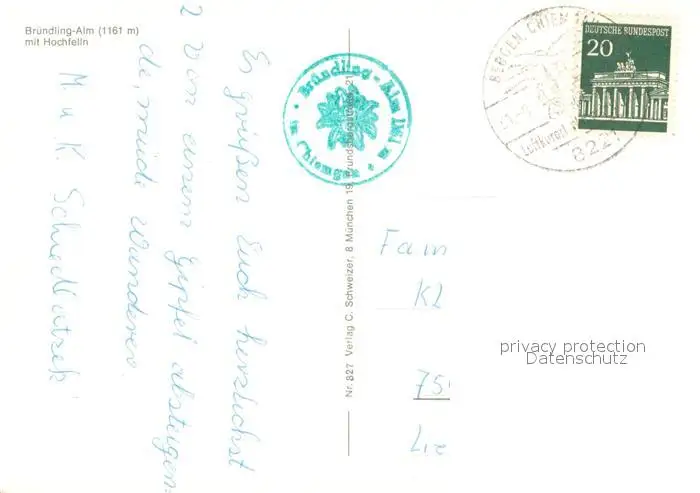 Bründling-Alm (1161 m)
mit Hochfelln
Es grüßen Euch herzlichst
2 von einem Gipfel absteigen-
de, müde Wanderer.
M. u K.
Bründling-Alm 1161 m
Nr. 827 Verlag C. Schweizer, 8 München 19,
BERGEN, CHIEM
Luftkurort
822
DEUTSCHE BUNDESPOST
20
Fam
75
privacy protection
Datenschutz